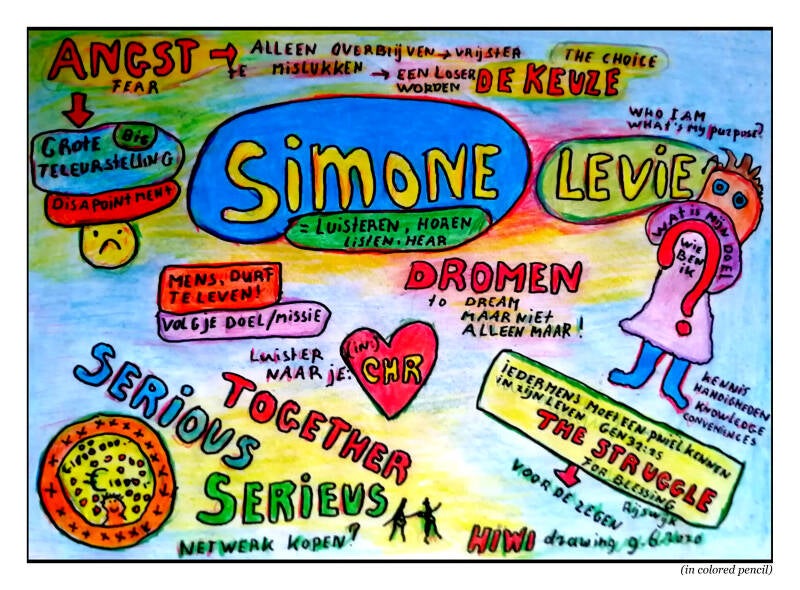 ANGST → ALLEEN OVERBLIJVEN → VRIJSTER
FEAR
TE MISLUKKEN → EEN LOSER
WORDEN
THE CHOICE
DE KEUZE
GROTE BIG
TELEURSTELLING
DISAPOINTMENT
SIMONE
= LUISTEREN, HOREN
LISTEN, HEAR
LEVIE
WHO I AM
WHAT'S MY PURPOSE?
WAT IS MIJN DOEL
WIE
BEN
IK
?
MENS, DURF
TE LEVEN!
VOLG JE DOEL/MISSIE
DROMEN
TO DREAM
MAAR NIET
ALLEEN MAAR!
LUISTER
NAAR JE:
(IN:)
CHR
KENNIS
HANDIGHEDEN
KNOWLEDGE
CONVENIENCES
SERIOUS
TOGETHER
SERIEUS
NETWERK KOPEN?
IEDER MENS MOET EEN PNIEL KENNEN
IN ZIJN LEVEN GEN 32:25
THE STRUGGLE
FOR BLESSING
VOOR DE ZEGEN
Rijswijk
HIWI drawing 9.6.2020
(in colored pencil)